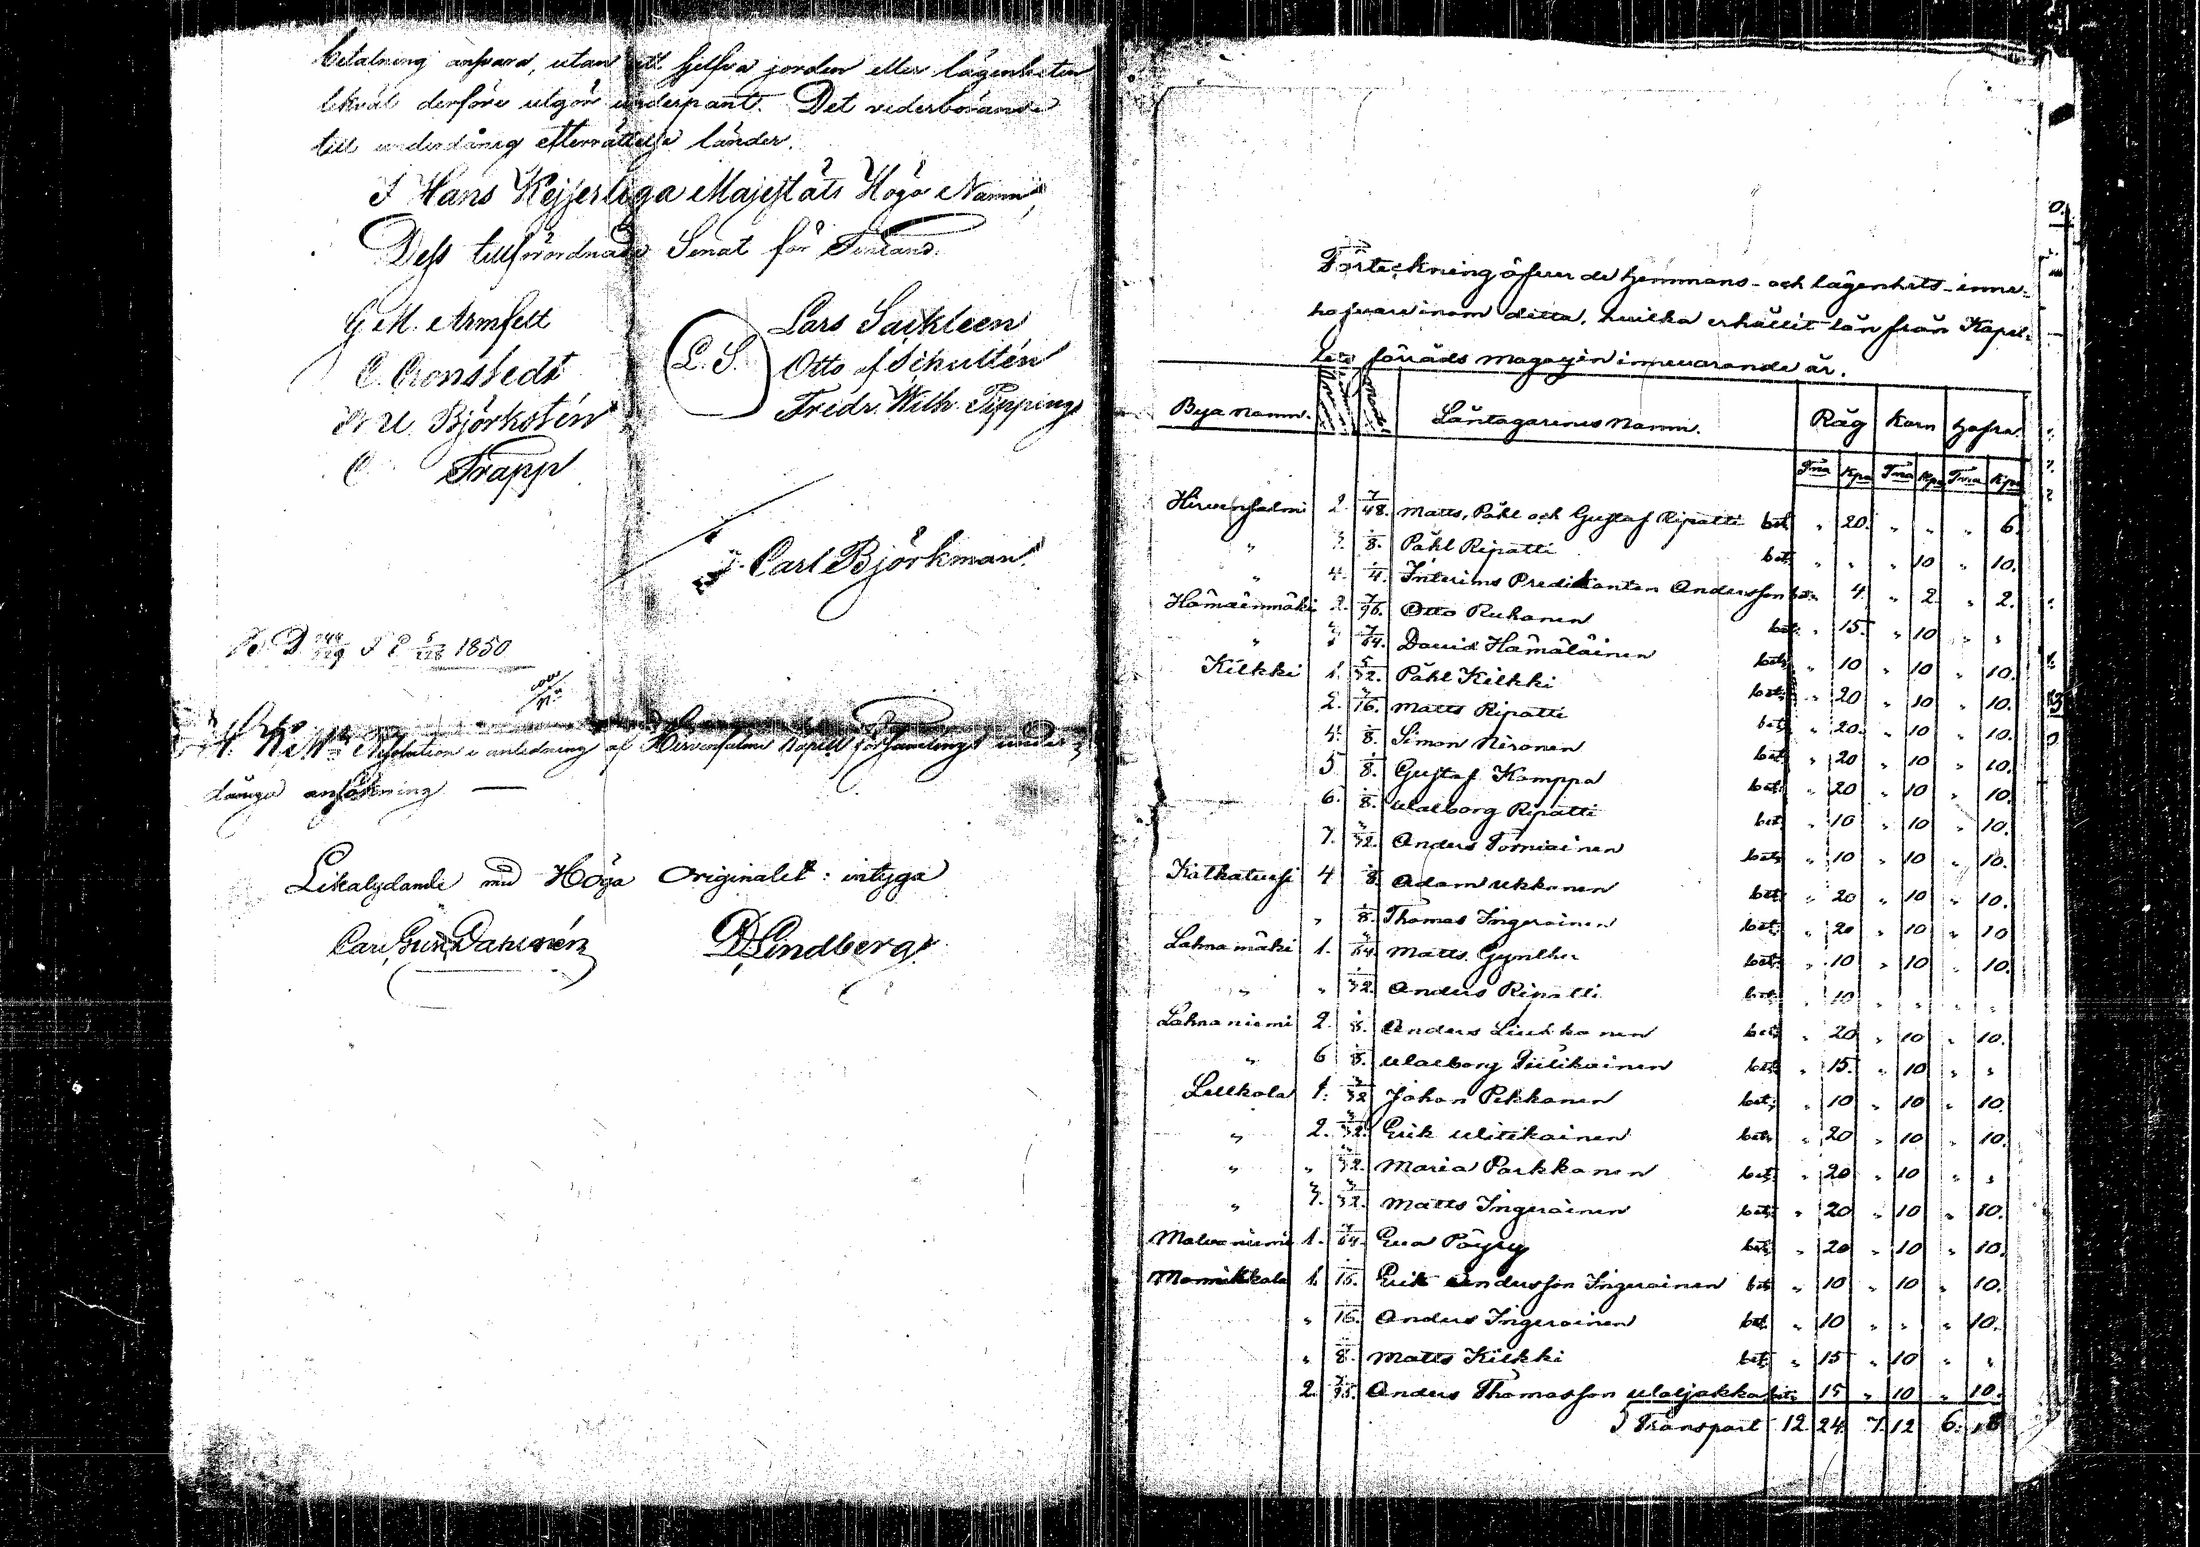 betalning ansvara, utan att sjelfva jorden eller lägenheten
likväl derföre utgör underpant. Det vederbörande
till underdånig efterrättelse länder.
I Hans Kejserliga Majestäts Höga Namn,
Dess tillförordnade Senat för Finland.
G. M. Armfelt
Lars Sackleen
C. Cronstedt
L. S.
Otto af Schultén
Björkstén
Fredr. Wilh. Pipping
C Trapp
Carl Björkman
1850
Resolution i anledning af Hirvensalmi Kapell församlings under-
dåniga ansökning —
Likalydande med Höga Originalet: intyga
Carl Gust. Dahlström
Lindberg
Förteckning öfver de hemmans- och lägenhets-inne-
hafvare inom detta, hvilka erhållit lån från Kapel-
lets förråds magazin innevarande år.
Bya namn. Låntagarenes namn. Råg Korn Hafra.
Tnna Kpa Tnna Kpa Tnna Kpa
Hirvensalmi 2. 7/48. Matts, Påhl och Gustaf Ripatti bet. " 20. " " " 6.
" 1/8. Påhl Ripatti bet. " " " 10 " 10.
" 4. 1/4. Interims Predikanten Andersson bet. " 4. " 2. " 2.
Hämäenmäki 2. 7/96. Otto Ruhanen bet. " 15. " 10 " "
" 7/64. David Hämäläinen bet. " 10 " 10 " 10.
Kilkki 1. 5/32. Påhl Kilkki bet. " 20 " 10 " 10.
2. 3/16. Matts Ripatti bet. " 20. " 10 " 10.
4. 1/8. Simon Nironen bet. " 20 " 10 " 10.
5 1/8. Gustaf Kamppa bet. " 20 " 10 " 10.
6. 1/8. Walborg Ripatti bet. " 10 " 10 " 10.
7. 3/32. Anders Torniainen bet. " 10 " 10 " 10.
4 1/8. Adam Ukkonen bet. " 20 " 10 " 10.
" 1/8. Thomas Ingerainen bet. " 20 " 10 " 10
Lahnamäki 1. Matts Gynther bet. " 10 " 10 " 10.
" " Anders Ripatti bet. " 10 " " " "
Lahnaniemi 2. 1/8. Anders Liukkonen bet. " 20 " 10 " 10.
" 6 1/8. Walborg Tiilikainen bet. " 15. " 10 " "
Lellkola 1. 3/32 Johan Pekkanen bet. " 10 " 10 " 10.
" 2. 3/32. Erik Witikainen bet. " 20 " 10 " 10.
" " 3/32. Maria Parkkonen bet. " 20 " 10 " "
" 3/32. Matts Ingerainen bet. " 20 " 10 " 10.
Malvaniemi 1. Eva Pöyry bet. " 20 " 10 " 10.
Monnikkala 1. 1/16. Erik Andersson Ingerainen bet. " 10 " 10 " 10.
" 1/16. Anders Ingerainen bet. " 10 " " " 10.
" 1/8. Matts Kilkki bet. " 15 " 10 " "
2. Anders Thomasson Waljakka bet. " 15 " 10 " 10.
Transport 12. 24. 7. 12 6. 18